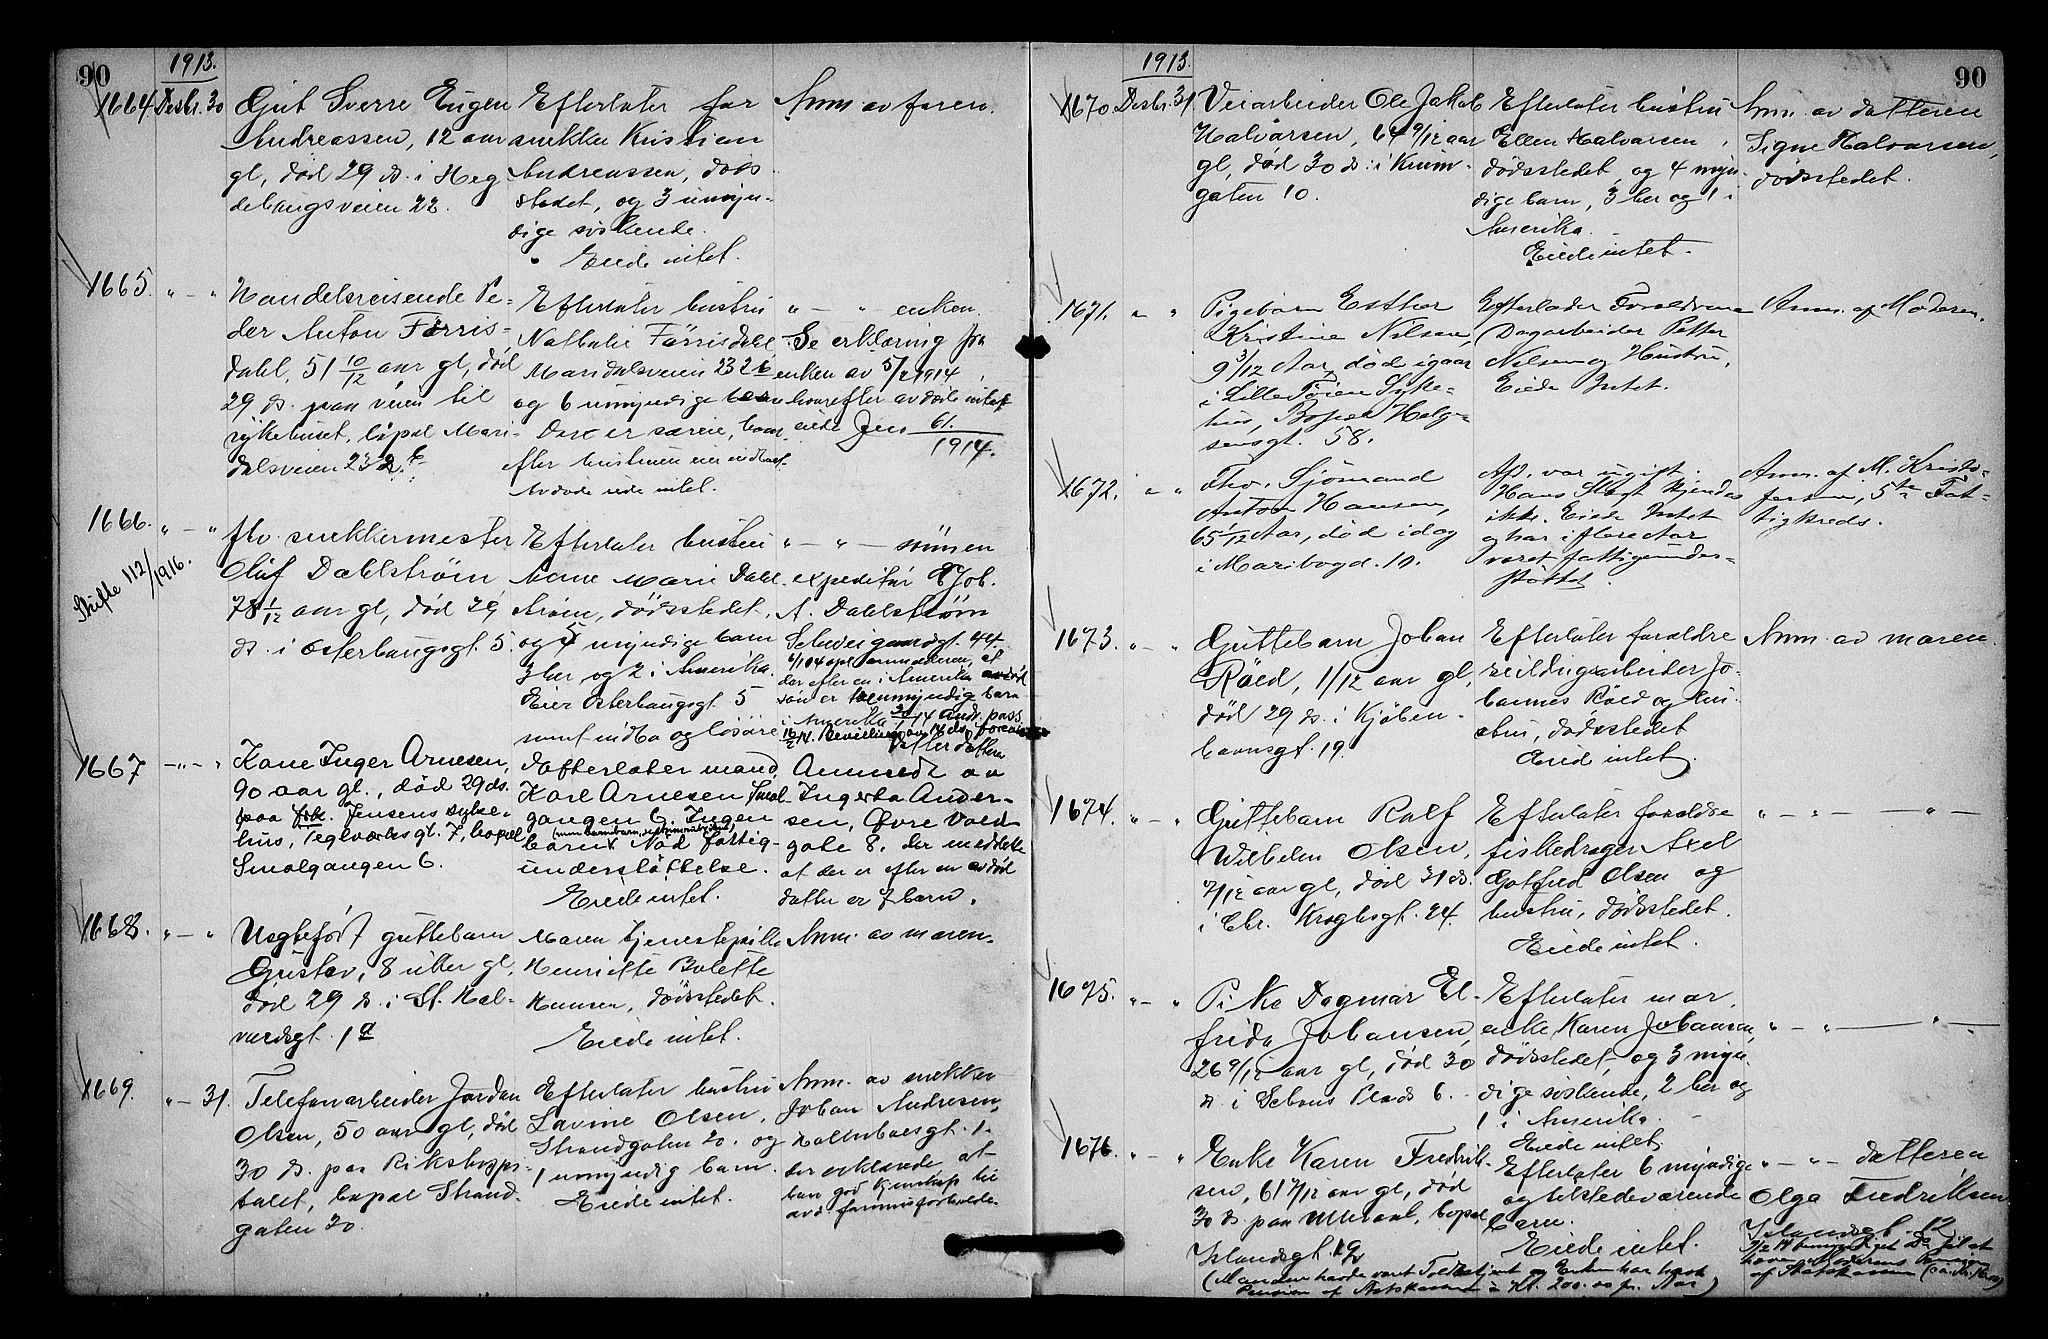 90
1913.
1664. Desbr. 30
Gut Sverre Eugen
Andreassen, 12 aar
gl, død 29 ds. i Heg
dehaugsveien 22.
Efterlater far
snekker Kristian
Andreassen, døds
stedet, og 3 umyn-
dige søskende.
Eiede intet.
Anm. av faren.
1665. " — "
Handelsreisende Pe-
der Anton Förris-
dahl, 51 10/12 aar gl, död
29 ds. paa veien til
sykehuset, bopæl Mari-
dalsveien 232 b
Efterlater hustru
Nathalie Förrisdahl
Maridalsveien 232 b
og 6 umyndige barn
efter hustruen
Avdøde eiede intet.
" — " enken.
Se erklæring fra
enken av 5/2 1914,
hvorefter avdøde intet
eiede Jnr 61.
1914.
1666. " — "
Skifte 112/1916.
fhv. snekkermester
Oluf Dahlström
78 1/12 aar gl, död 29
ds. i Österhaugsgt. 5.
Efterlater hustru
Anne Marie Dahl-
ström, dödsstedet,
og 5 myndige barn
3 her og 2 i Amerika.
Eier Österhaugsgt. 5
samt indbo og løsöre
" — " — sönnen
expeditör Joh.
A. Dahlström
Schweigaardsgt. 44.
der efter en i Amerika avdød
søn er umyndig barn
i Amerika
1667 — " — "
Kone Inger Arnesen,
90 aar gl., död 29 ds.
paa frk. Jensens syke-
hus, Teglverksgt. 7, bopæl
Smalgangen 6.
Efterlater mand
Karl Arnesen Smal-
gangen 6. Ingen
barn. Nöd fattig-
understöttelse.
Eiede intet.
Anmeldt av
Ingerta Ander-
sen, Øvre Vold
gate 8, der meddelte
at der er efter en avdød
datter er 7 barn.
1668. " — "
Uegtefødt guttebarn
Gustav, 8 uker gl,
död 29 ds. i St. Hal-
vardsgt. 1 a
Moren tjenestepike
Henriette Bolette
Hansen, dödsstedet.
Eiede intet.
Anm. av moren.
1669. " — 31.
Telefonarbeider Jordan
Olsen, 50 aar gl, död
30 ds. paa Rikshospi-
talet, bopæl Strand-
gaten 30.
Efterlater hustru
Lavine Olsen,
Strandgaten 30. og
1 umyndig barn.
Eiede intet.
Anm. av snekker
Johan Andresen,
gt. 1.
der erklærede at
han god kjendskap til
avd. formuesforholde.
90
1913.
1670. Desbr. 31.
Veiarbeider Ole Jakob
Halvorsen, 64 9/12 aar
gl, död 30 ds. i Krum-
gaten 10.
Efterlater hustru
Ellen Halvorsen,
dödsstedet, og 4 myn-
dige barn, 3 her og 1 i
Amerika.
Eiede intet.
Anm. av datteren
Signe Halvorsen,
dödsstedet.
1671. " "
Pigebarn Esther
Kristine Nilsen,
9 3/12 Aar, död igaar
i Lille Töien Syke-
hus, Bopæl Helg-
sensgt. 58.
Efterlader Forældrene
Dagarbeider Petter
Nilsen og Hustru,
Eiede Intet.
Anm. af Moderen.
1672. " "
Fhv. Sjömand
Anton Hansen,
65 1/12 Aar, död idag
i Maribogd. 10.
Afd. var ugift.
Hans Slegt kjendes
ikke. Eiede Intet
og har i flere Aar
været fattigunder-
støttet.
Anm. af M. Kristo-
fersen, 5te Fat-
tigkreds.
1673. " — "
Guttebarn Johan
Röed, 1/12 aar gl,
död 29 ds. i Kjöben-
havnsgt. 19.
Efterlater forældre
arbeider Jo-
hannes Röed og hu-
stru, dödsstedet
Eiede intet.
Anm. av moren.
1674. " — "
Guttebarn Rolf
Wilhelm Olsen,
7/12 aar gl, död 31 ds.
i Chr. Kroghsgt. 24.
Efterlater forældre
fiskedrager Axel
Gotfred Olsen og
hustru, dödsstedet.
Eiede intet.
" — " — " —
1675. " — "
Pike Dagmar El-
frida Johansen,
26 9/12 aar gl, död 30
ds. i Schous Plads 6.
Efterlater mor,
enke Karen Johansen,
dödsstedet, og 3 myn-
dige söskende, 2 her og
1 i Amerika.
Eiede intet
" — " — " —
1676. " — "
Enke Karen Fredrik-
sen, 61 7/12 aar gl, död
30 ds. paa Ullevaal, bopæl
Islandsgt. 12
(Manden havde været Toldbetjent og Enken har havt
Pension af Statskassen à Kr. 200.00 pr. Aar)
Efterlater 6 myndige
og tilstedeværende
barn.
Eiede intet.
" — " — datteren
Olga Fredriksen
Islandsgt. 12
af Statskassen